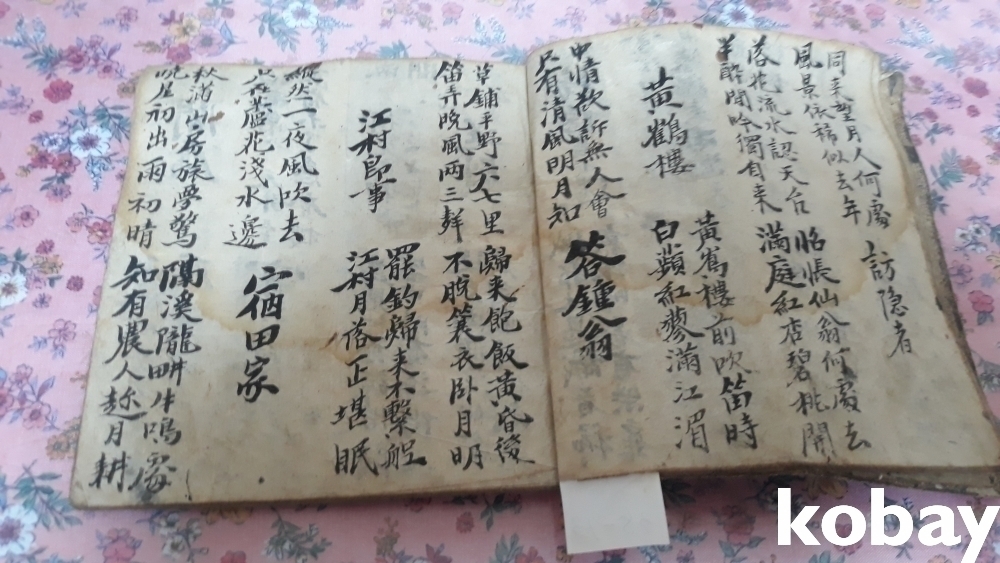 同来望月人何處
風景依稀似去年
訪隱者
落花流水認天台
怊悵仙翁何處去
半醉閒吟獨自来
滿庭紅店碧桃開
黃鶴樓
黃鶴樓前吹笛時
白蘋紅蓼滿江湄
中情欲訴無人會
只有清風明月知
答鍾翁
草鋪平野六七里
歸来飽飯黃昏後
笛弄晚風兩三聲
不脫簑衣卧月明
江村即事
罷釣歸来不繫舡
江村月落正堪眠
縱然一夜風吹去
只在蘆花淺水邊
宿田家
秋滿山房旅夢驚
隔溪隴畔牛鳴處
晩星初出雨初晴
知有農人趂月耕
kobay